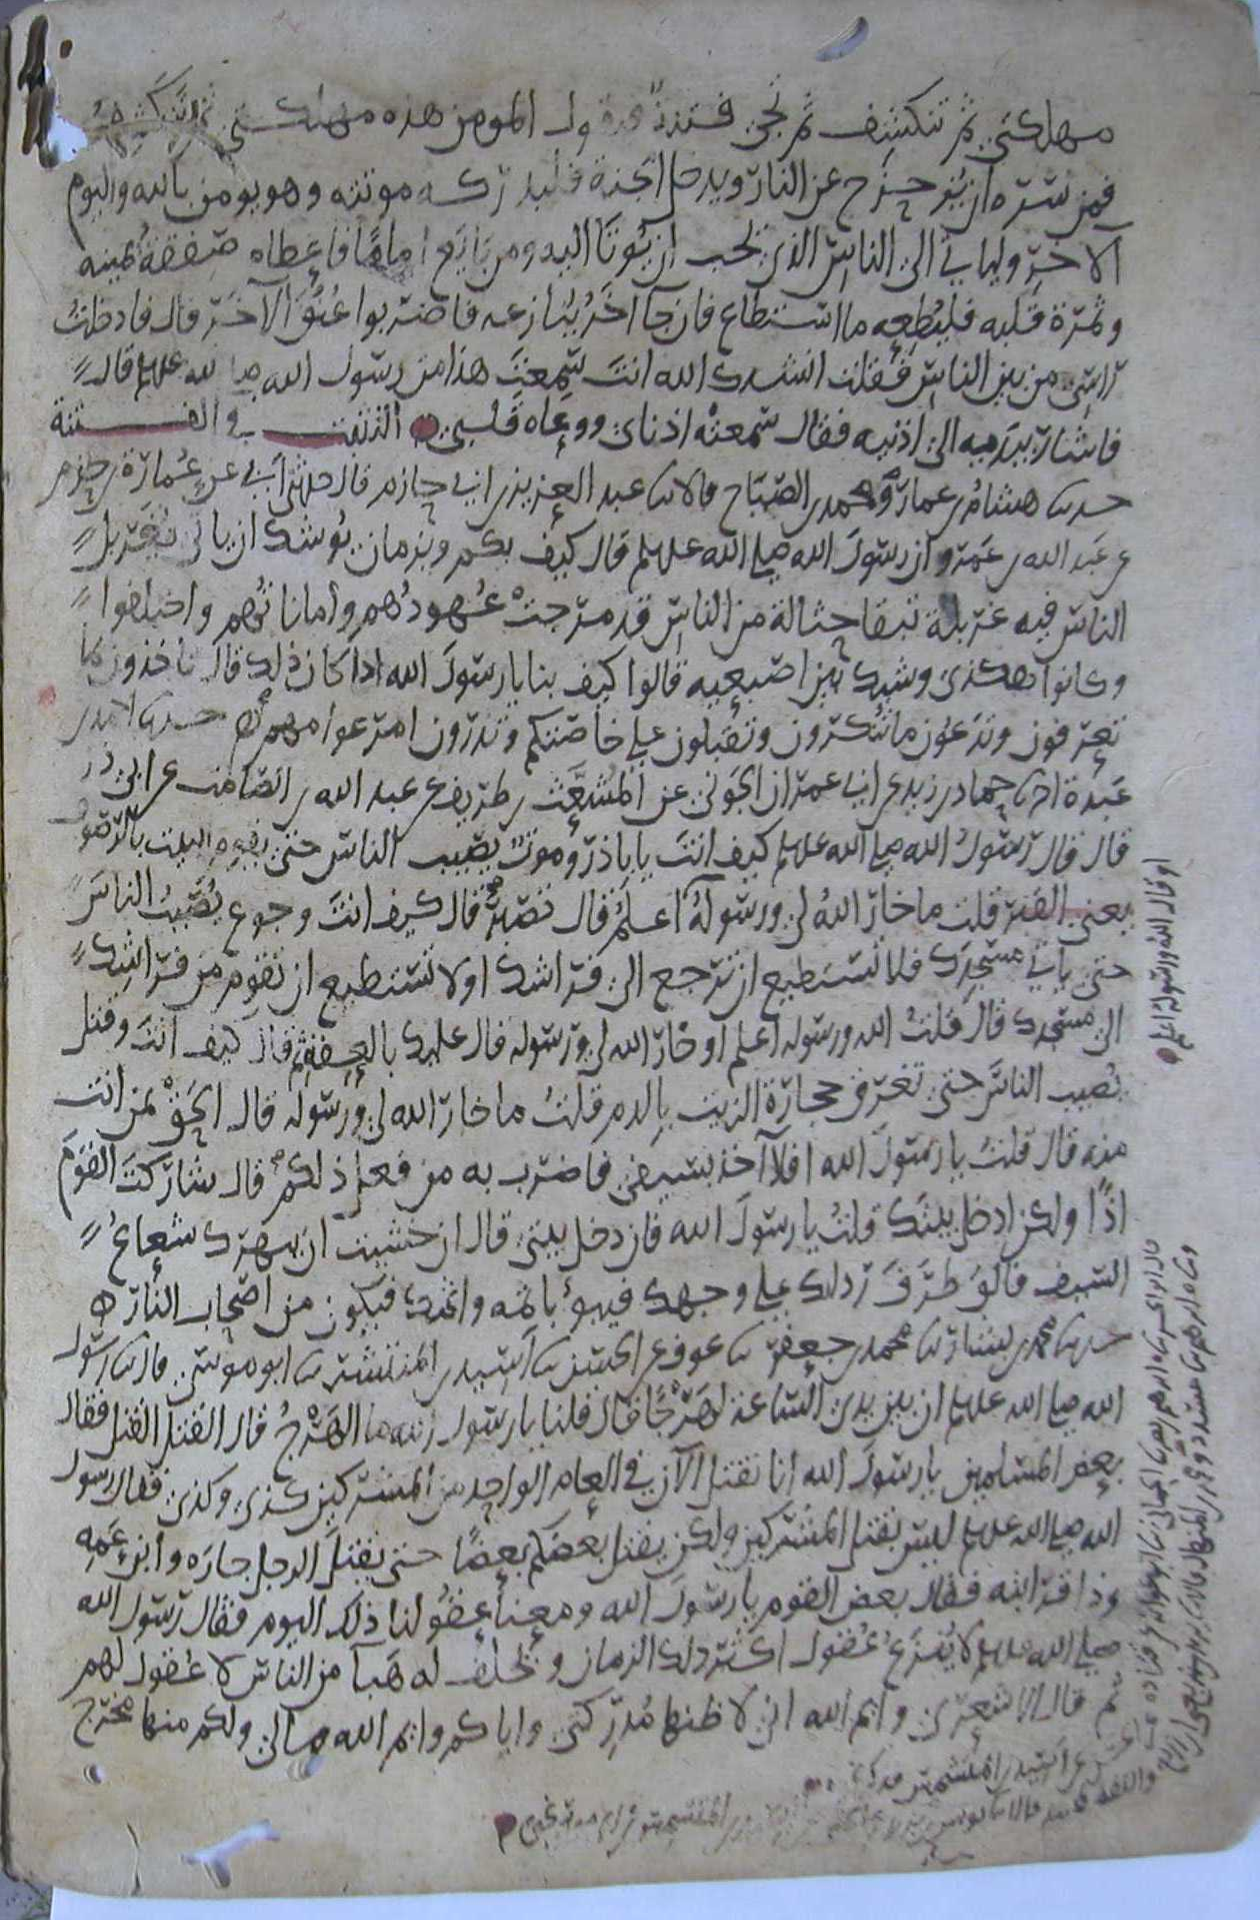 مهلكتي ثم تنكشف ثم تجي فتنة فيقول المومن هذه مهلكتي ثم تنكشف
فمن سره ان يزحزح عن النار ويدخل الجنة فلتدركه موتته وهو يومن بالله واليوم
الآخر وليأتي الى الناس الذي يحب ان يؤتا اليه ومن بايع اماما فأعطاه صفقة يمينه
وثمرة قلبه فليطعه ما استطاع فان جآ آخر ينازعه فاضربوا عنق الآخر قال فادخلت
راسي من بين الناس فقلت انشدك الله انت سمعت هذا من رسول الله صلى الله عليه قال
فاشار بيديه الى اذنيه فقال سمعته اذناي ووعاه قلبي التثبت في الفتنة
حدثنا هشام بن عمار ومحمد بن الصباح قالا ثنا عبد العزيز بن ابي حازم قال حدثني ابي عن عمارة بن حزم
عن عبد الله بن عمرو ان رسول الله صلى الله عليه وسلم قال كيف بكم وبزمان يوشك ان ياتي يغربل
الناس فيه غربلة تبقا حثالة من الناس قد مرجت عهودهم وأماناتهم واختلفوا
وكانوا هكذى وشبك بين اصبعيه قالوا كيف بنا يا رسول الله اذا كان ذلك قال تاخذون بما
تعرفون وتدعون ما تنكرون وتقبلون على خاصتكم وتذرون امر عوامهم حدثنا احمد بن
عبدة انا حماد بن زيد عن ابي عمران الجوني عن المشعث بن طريف عن عبد الله بن الصامت عن ابي ذر
قال قال رسول الله صلى الله عليه وسلم كيف انت يا باذر وموت يصيب الناس حتى يقوم البيت بالوصيف
يعني القبر قلت ما خار الله لي ورسوله أو قال الله ورسوله اعلم قال تصبر قال كيف انت وجوع يصيب الناس
حتى ياتي مسجدك فلا تستطيع ان ترجع الى فراشك اولا تستطيع ان تقوم من فراشك
الى مسجدك قال قلت الله ورسوله اعلم او خار الله لي ورسوله قال عليك بالعفة ثم قال كيف انت وقتل
يصيب الناس حتى تغرق حجارة الزيت بالدم قلت ما خار الله لي ورسوله قال الحق بمن انت
منه قال قلت يا رسول الله افلا آخذ بسيفي فاضرب به من فعل ذلك قال شاركت القوم
اذا ولكن ادخل بيتك قلت يا رسول الله فان دخل بيتي قال ان خشيت ان يبهرك شعاع
السيف فالق طرف ردائك على وجهك فيبوء باثمه واثمك فيكون من اصحاب النار
حدثنا محمد بن بشار ثنا محمد بن جعفر ثنا عوف عن الحسن ثنا أسيد بن المتشمس ثنا ابو موسى قال ثنا رسول
الله صلى الله عليه وسلم ان بين يدي الساعة لهرجا قال قلنا يا رسول الله ما الهرج قال القتل القتل فقال
بعض المسلمين يا رسول الله انا نقتل الآن في العام الواحد من المشركين كذى وكذى فقال رسول
الله صلى الله عليه وسلم ليس بقتل المشركين ولكن يقتل بعضكم بعضا حتى يقتل الرجل جاره وابن عمه
وذا قرابته فقال بعض القوم يا رسول الله ومعنا عقولنا ذلك اليوم فقال رسول الله
صلى الله عليه وسلم لا ينزع عقول اكثر ذلك الزمان ويخلف له هبآ من الناس لا عقول لهم
ثم قال الاشعري وايم الله اني لاظنها مدركتي واياكم وايم الله ما لي ولكم منها مخرج
او قال الله ورسوله اعلم